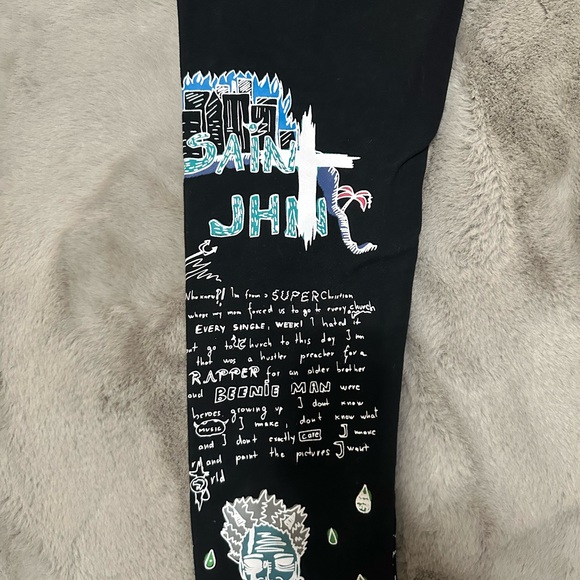 SAINT
JHN
Who knew?! I'm from a SUPER Christian
where my mom forced us to go to every church
EVERY SINGLE, WEEK! I hated it
but go to church to this day I'm
that was a hustler preacher for a
RAPPER for an older brother
and BEENIE MAN were
heroes growing up I dont know
MUSIC I make, dont know what
and I dont exactly care I make
and paint the pictures I want
rld